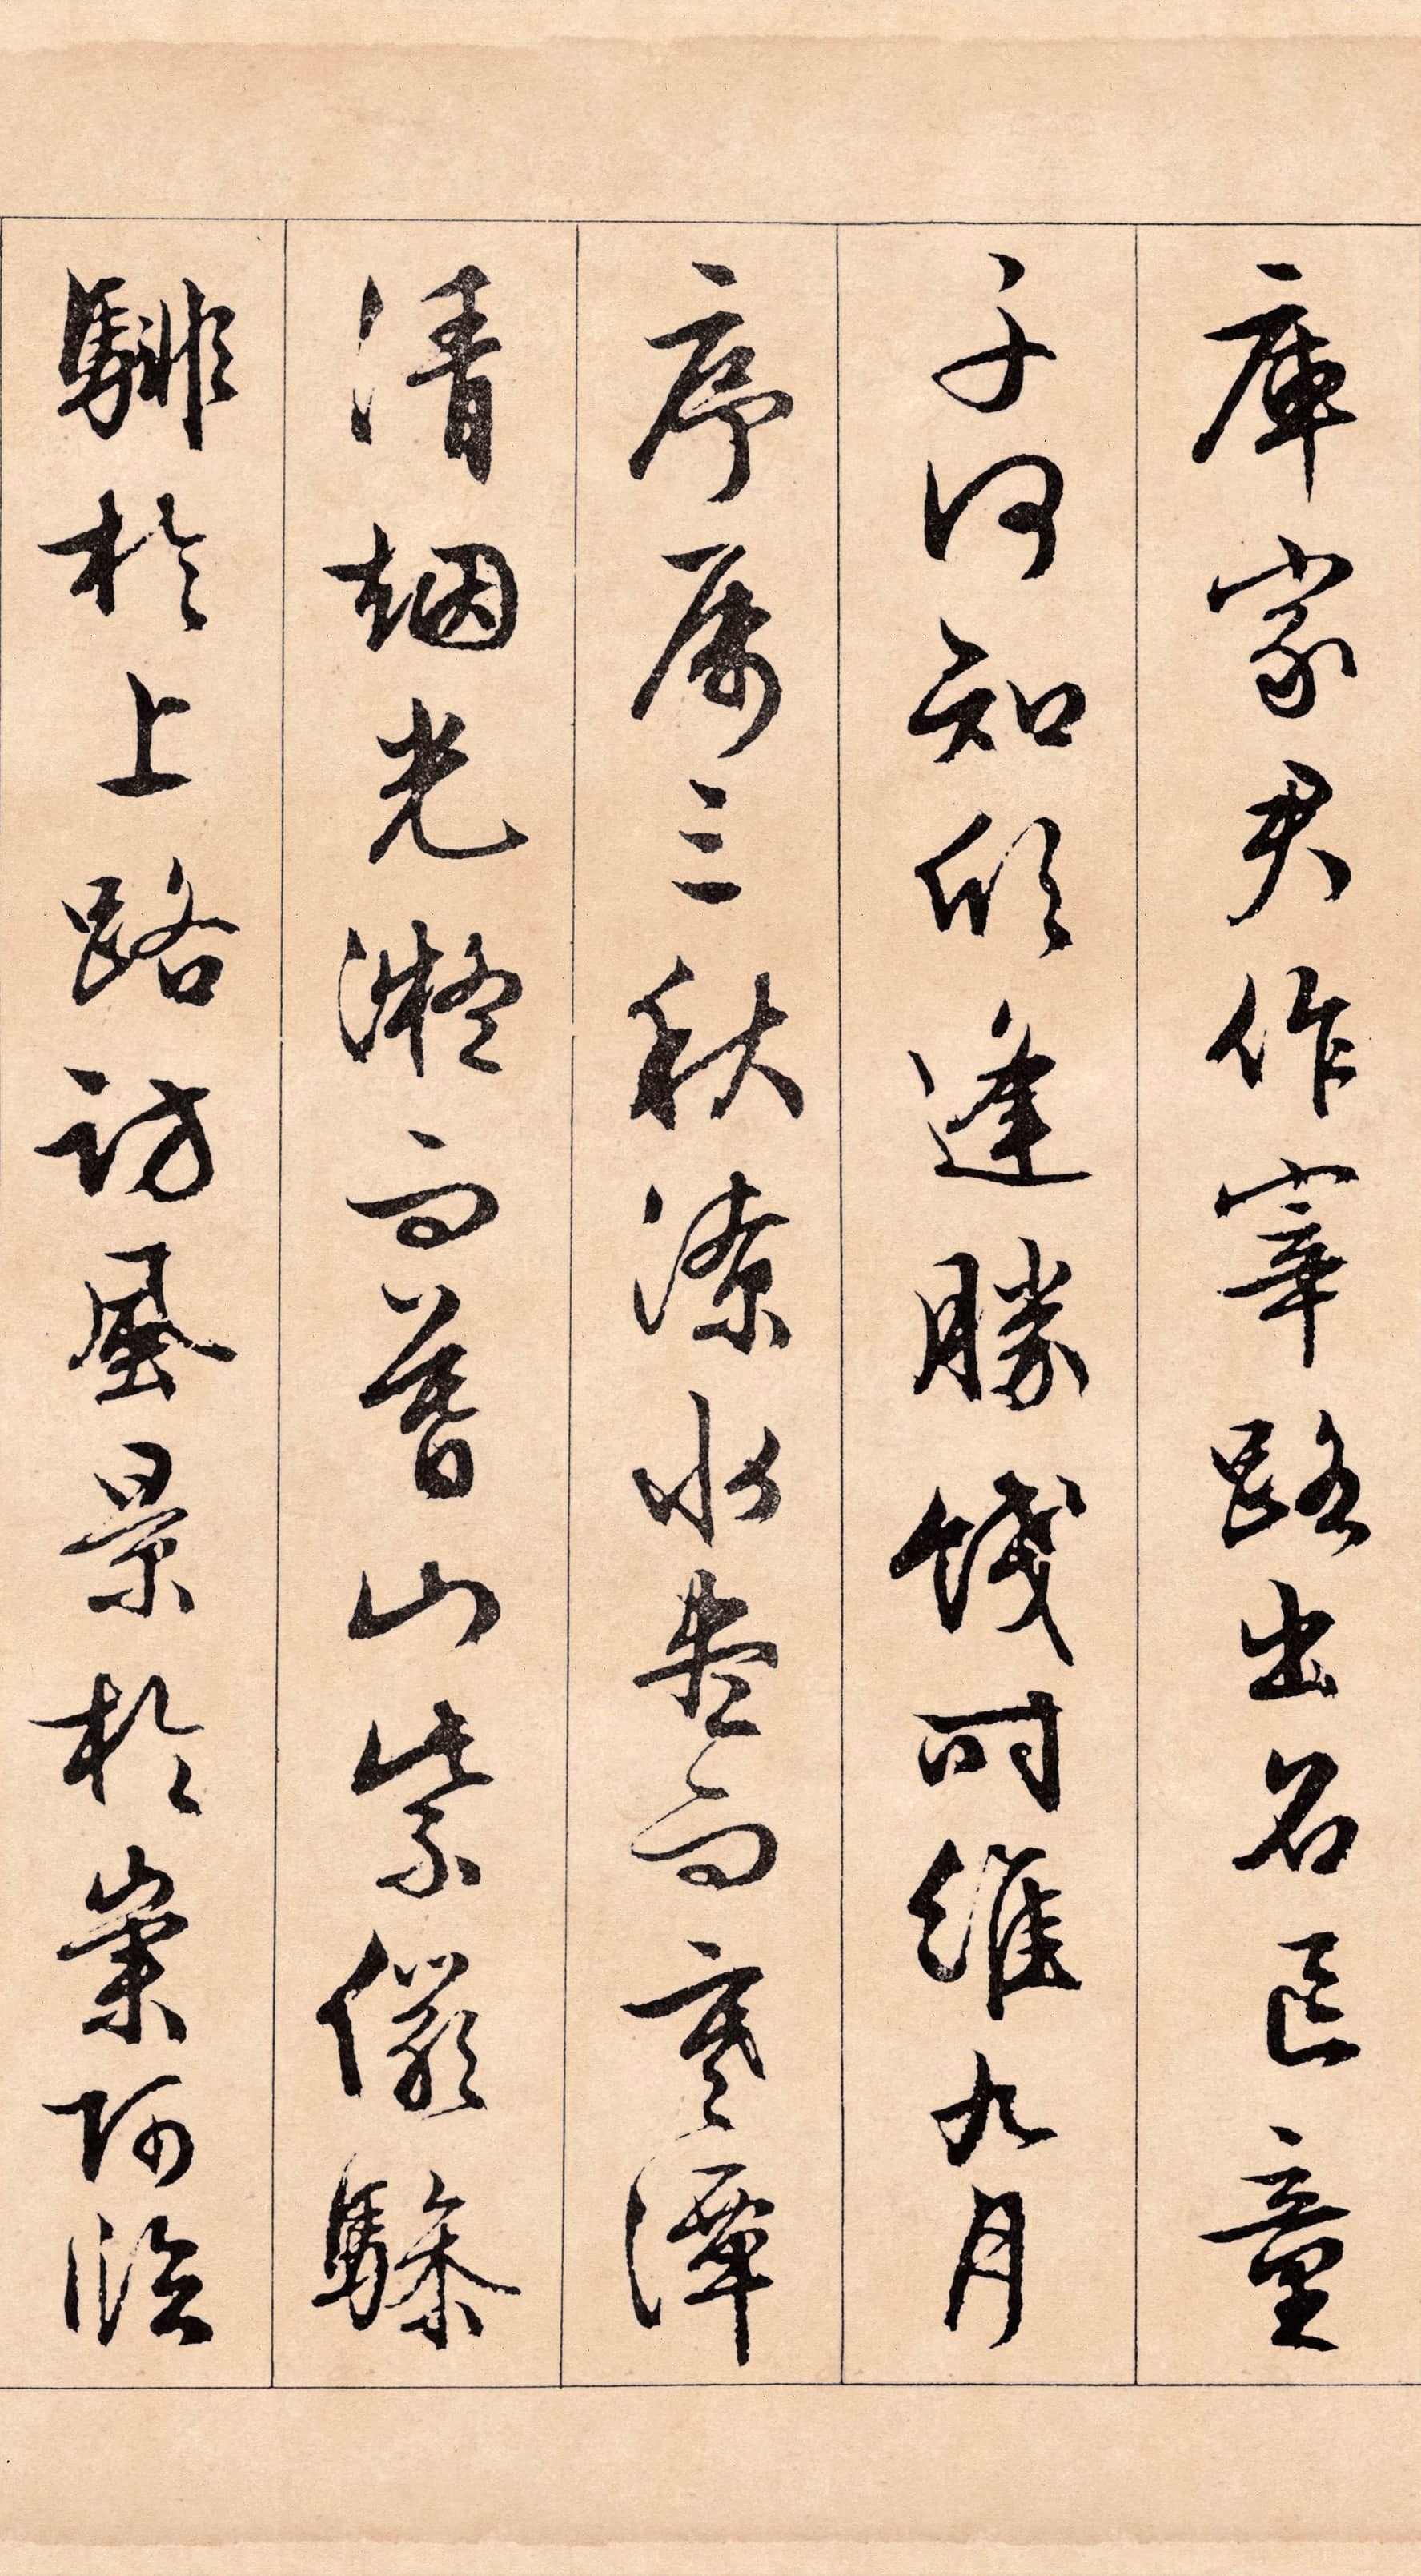 庫家君作宰路出名區童
子何知欣逢勝餞时維九月
序属三秋潦水盡而寒潭
清烟光凝而暮山紫儼驂
騑於上路訪風景於崇阿臨